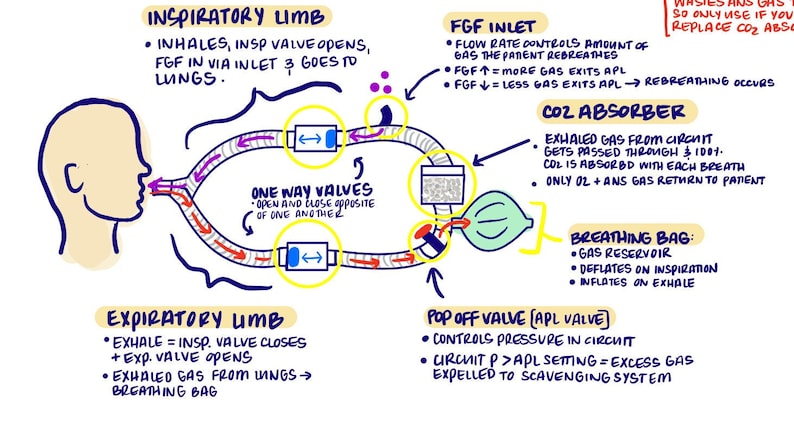 INSPIRATORY LIMB
• INHALES, INSP VALVE OPENS,
FGF IN VIA INLET & GOES TO
LUNGS.
FGF INLET
• FLOW RATE CONTROLS AMOUNT OF
GAS THE PATIENT REBREATHES
• FGF ↑ = MORE GAS EXITS APL
• FGF ↓ = LESS GAS EXITS APL → REBREATHING OCCURS
WASTES ANS GAS
SO ONLY USE IF YOU
REPLACE CO2
CO2 ABSORBER
• EXHALED GAS FROM CIRCUIT
GETS PASSED THROUGH & 100%
CO2 IS ABSORBD WITH EACH BREATH
• ONLY O2 + ANS GAS RETURN TO PATIENT
ONE WAY VALVES
• OPEN AND CLOSE OPPOSITE
OF ONE ANOTHER
BREATHING BAG:
• GAS RESERVOIR
• DEFLATES ON INSPIRATION
• INFLATES ON EXHALE
EXPIRATORY LIMB
• EXHALE = INSP. VALVE CLOSES
+ EXP. VALVE OPENS
• EXHALED GAS FROM LUNGS →
BREATHING BAG
POP OFF VALVE [APL VALVE]
• CONTROLS PRESSURE IN CIRCUIT
• CIRCUIT P > APL SETTING = EXCESS GAS
EXPELLED TO SCAVENGING SYSTEM